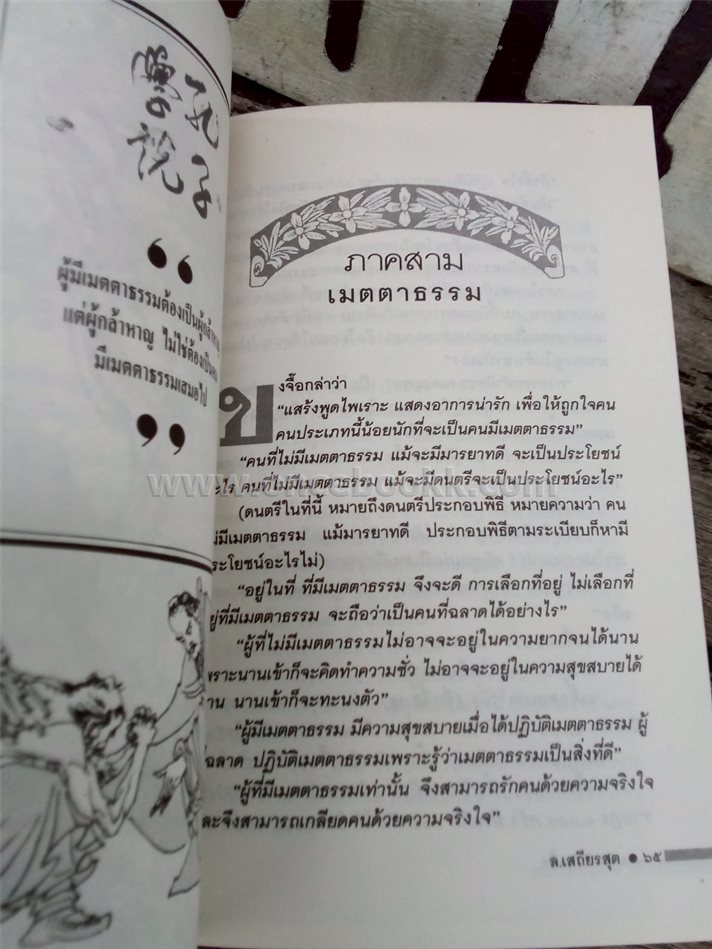 孔子
學說
“
ผู้มีเมตตาธรรมต้องเป็นผู้กล้าหาญ
แต่ผู้กล้าหาญ ไม่ใช่ต้องเป็น
มีเมตตาธรรมเสมอไป
”
ภาคสาม
เมตตาธรรม
ขงจื๊อกล่าวว่า
“แสร้งพูดไพเราะ แสดงอาการน่ารัก เพื่อให้ถูกใจคน
คนประเภทนี้น้อยนักที่จะเป็นคนมีเมตตาธรรม”
“คนที่ไม่มีเมตตาธรรม แม้จะมีมารยาทดี จะเป็นประโยชน์
อะไร คนที่ไม่มีเมตตาธรรม แม้จะมีดนตรีจะเป็นประโยชน์อะไร”
(ดนตรีในที่นี้ หมายถึงดนตรีประกอบพิธี หมายความว่า คน
ไม่มีเมตตาธรรม แม้มารยาทดี ประกอบพิธีตามระเบียบก็หามี
ประโยชน์อะไรไม่)
“อยู่ในที่ ที่มีเมตตาธรรม จึงจะดี การเลือกที่อยู่ ไม่เลือกที่
อยู่ที่มีเมตตาธรรม จะถือว่าเป็นคนที่ฉลาดได้อย่างไร”
“ผู้ที่ไม่มีเมตตาธรรมไม่อาจจะอยู่ในความยากจนได้นาน
เพราะนานเข้าก็จะคิดทำความชั่ว ไม่อาจจะอยู่ในความสุขสบายได้
นาน นานเข้าก็จะทะนงตัว”
“ผู้มีเมตตาธรรม มีความสุขสบายเมื่อได้ปฏิบัติเมตตาธรรม ผู้
ฉลาด ปฏิบัติเมตตาธรรมเพราะรู้ว่าเมตตาธรรมเป็นสิ่งที่ดี”
“ผู้ที่มีเมตตาธรรมเท่านั้น จึงสามารถรักคนด้วยความจริงใจ
และจึงสามารถเกลียดคนด้วยความจริงใจ”
ล.เสถียรสุต ● ๖๕